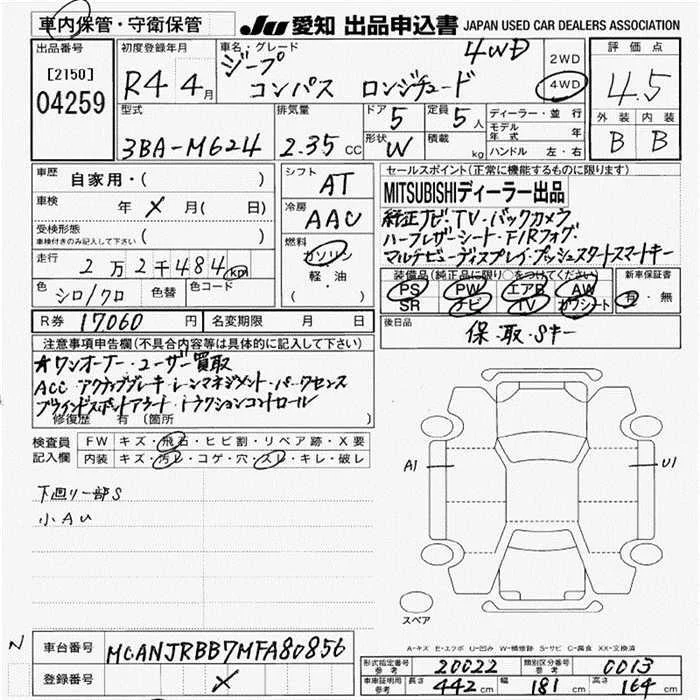 車内保管・守衛保管
JU 愛知 出品申込書 JAPAN USED CAR DEALERS ASSOCIATION
出品番号
[2150]
04259
初度登録年月
R4 4月
車名・グレード
ジープ 4WD
コンパス ロンジチュード
2WD
4WD
評価点
4.5
外装 内装
B B
型式
3BA-M624
排気量
2.35 CC
ドア 5
定員 5 人
形状 W
積載 kg
ディーラー・並行
モデル年式 年
ハンドル 左・右
車歴
自家用・( )
車検
年 X 月( 日)
受検形態
車検付きのみ記入して下さい
( )
走行
2万2千484 km
色
シロ/クロ
色替
色コード
シフト
AT
冷房
AAC
燃料
ガソリン
軽・油
( )
R券 17060 円
名変期限 月 日
セールスポイント(正常に機能するものに限ります)
MITSUBISHIディーラー出品
純正ナビ・TV・バックカメラ
ハーフレザーシート・F/Rフォグ
マルチビューディスプレイ・プッシュスタートスマートキー
装備品(純正品に限り○をつけてください)
PS PW エアB AW
SR ナビ TV カワシート
新車保証書
有・無
後日品
保・取・Sキー
注意事項申告欄(不具合内容等は具体的に記入して下さい)
★ワンオーナー・ユーザー買取
ACC・アクティブブレーキ・レーンマネジメント・パークセンス
ブラインドスポットアラート・トラクションコントロール
修復歴 有 (箇所 )
検査員記入欄
FW キズ・飛石・ヒビ割・リペア跡・X要
内装 キズ・汚レ・コゲ・穴・スレ・キレ・破レ
下回リ一部S
小AU
A1
U1
スペア
A-キズ E-エクボ U-凹み W-補修跡 S-サビ C-腐食 XX-交換済
N
車台番号 MCANJRBB7MFA80856
登録番号 X
形式指定番号 参考 20022
類別区分番号 参考 0013
車庫証明用 参考
長さ 442 cm
幅 181 cm
高さ 164 cm